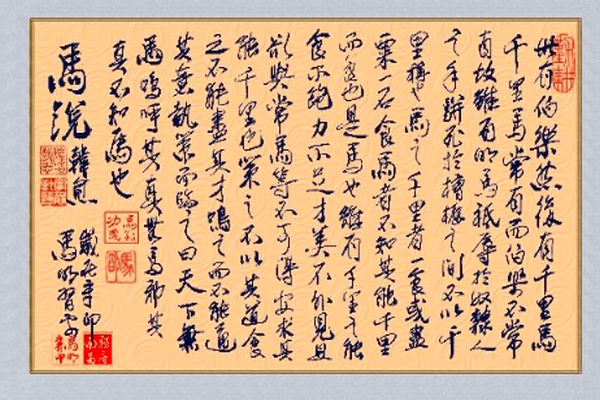 世有伯樂然後有千里馬
千里馬常有而伯樂不常
有故雖有名馬祗辱於奴隸人
之手駢死於槽櫪之間不以千
里稱也馬之千里者一食或盡
粟一石食馬者不知其能千里
而食也是馬也雖有千里之能
食不飽力不足才美不外見且
欲與常馬等不可得安求其
能千里也策之不以其道食
之不能盡其才鳴之而不能通
其意執策而臨之曰天下無
馬嗚呼其真無馬邪其
真不知馬也
馬說
韓愈
歲在辛卯
馬明習字